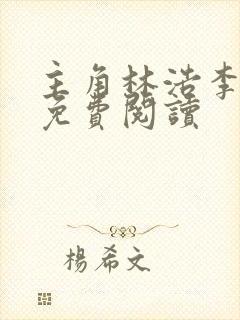 主角林浩李
免費閱讀
楊希文